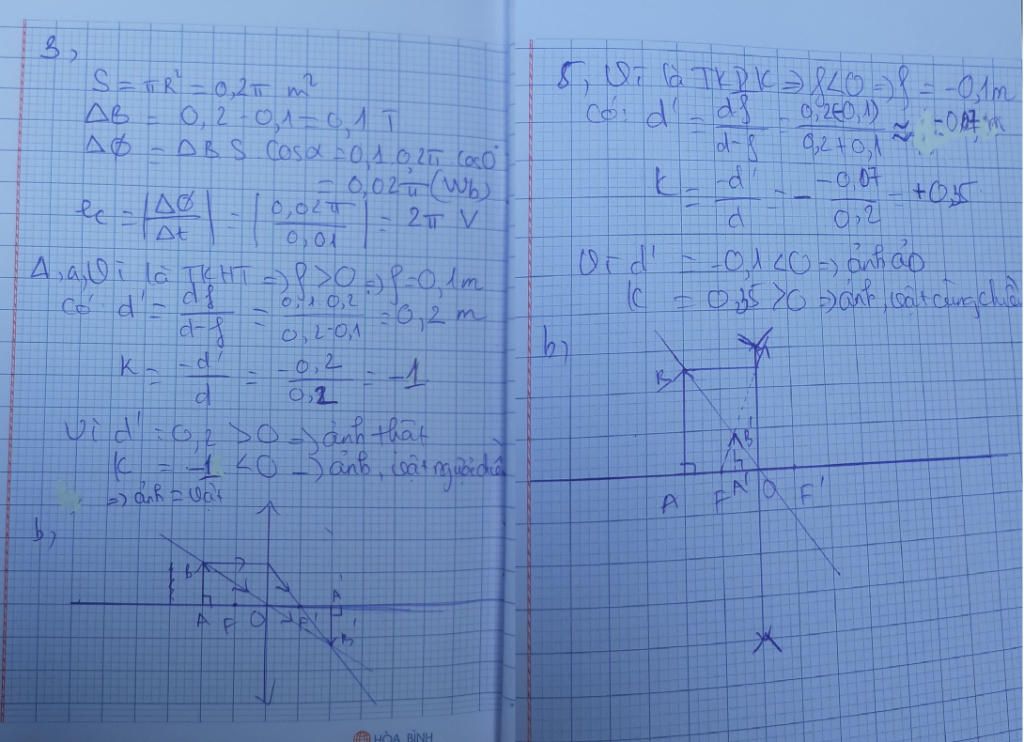 3,
S = πR² = 0,2π m²
ΔB = 0,2 - 0,1 = 0,1 T
ΔΦ = ΔB S cosα = 0,1 0,2π cos0
= 0,02π (Wb)
ec = |ΔΦ/Δt| = |0,02π/0,01| = 2π V
4, a, Vì là TKHT => f > 0 => f = 0,1m
Có d' = df/d-f = 0,1 0,2/0,2-0,1 = 0,2 m
K = -d'/d = -0,2/0,2 = -1
Vì d' = 0,2 > 0 => ảnh thật
K = -1 < 0 -> ảnh, vật ngược chiều
=> ảnh = vật
b,
B
A F O F' A'
B'
HÒA BÌNH
5, Vì là TKPK => f < 0 => f = -0,1m
Có: d' = df/d-f = 0,2(-0,1)/0,2+0,1 ≈ -0,07 m
K = -d'/d = - -0,07/0,2 = +0,35
Vì d' = -0,1 < 0 => ảnh ảo
K = 0,35 > 0 => ảnh, vật cùng chiều
b,
B
B'
A F A' O F'